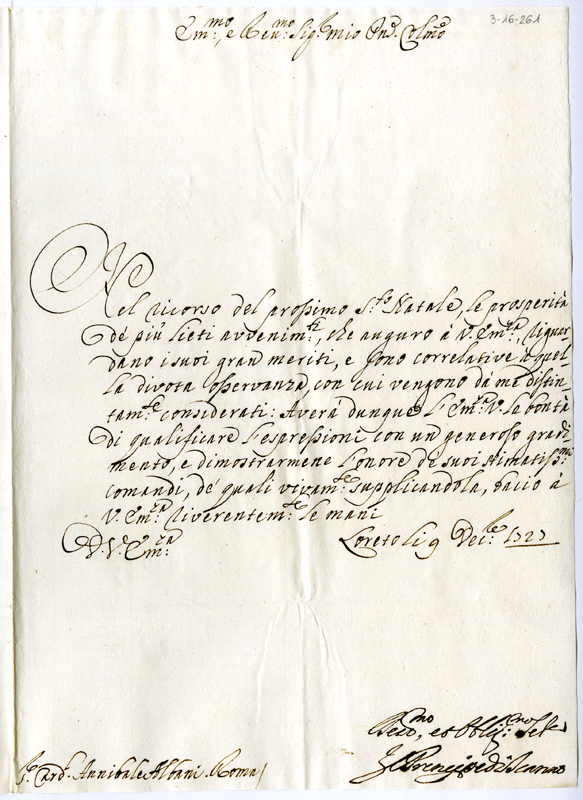 3-16-261
Em:mo, e Reu:mo Sig:r mio Pnd: Colmo
Nel ricorso del prossimo S:to Natale, le prosperità
de' più lieti avvenim:ti, che auguro à V. Em:za, riguar-
dano i suoi gran meriti, e sono correlative à quel-
la divota osservanza, con cui vengono da me distin-
tam:te considerati: Averà dunque l'Em:za V. la bontà
di qualificare l'espressioni con un generoso gradi-
mento, e dimostrarmene l'onore de suoi stimatiss:mi
comandi, de' quali vivam:te supplicandola, bacio à
V. Em:za riverentem:te le mani
D. V. Em:za
Loreto li 9 Dec:le 1727
Deuo:mo, et Obblig:mo Ser
Il Prencipe di
S:r Card: Annibale Albani. Roma